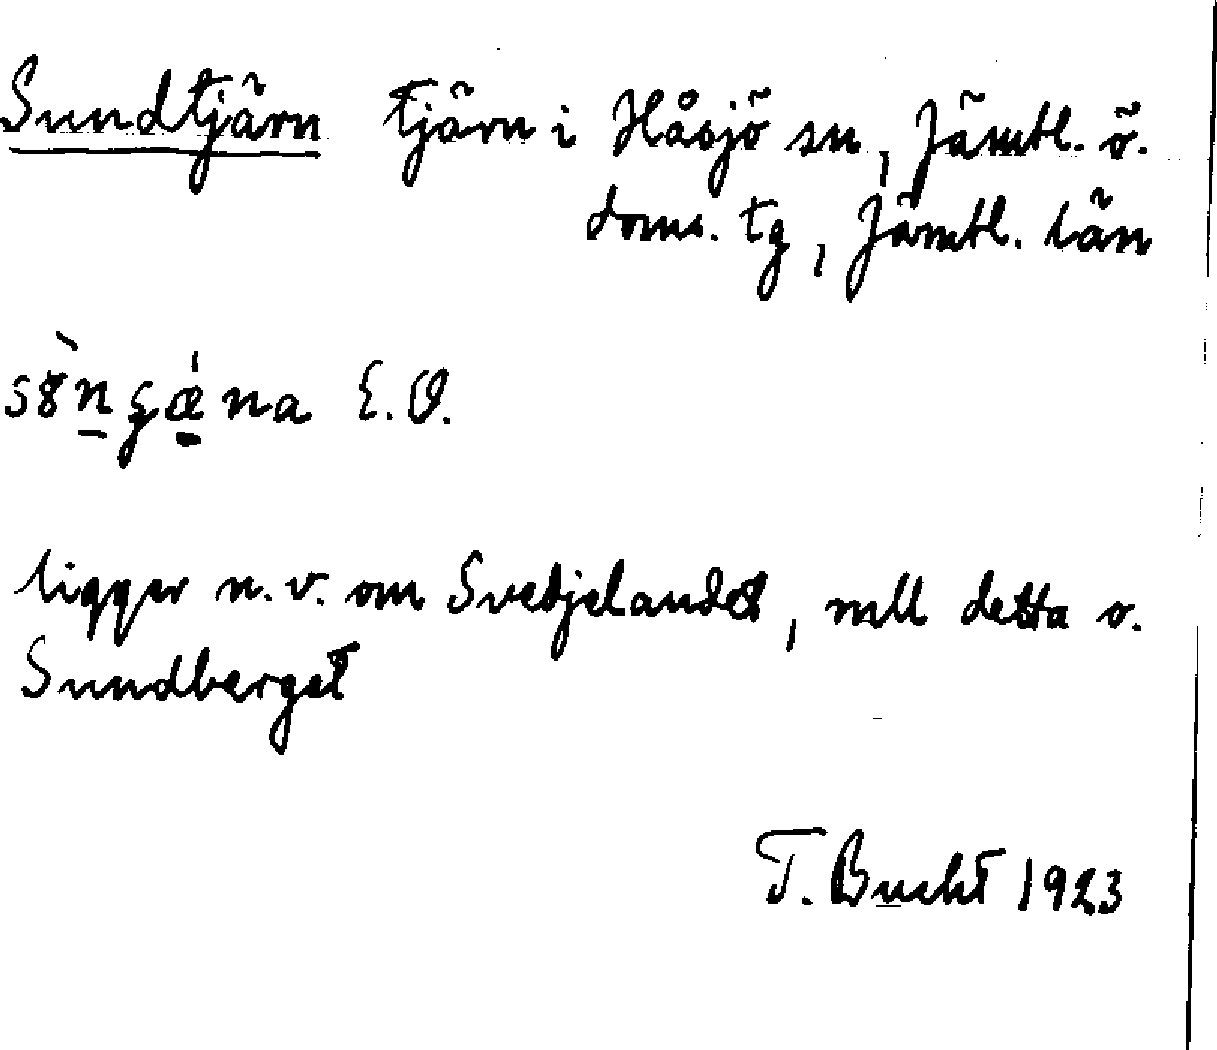 Sundtjärn tjärn i Håsjö sn, Jämtl. ö.
doms. tg, Jämtl. län
E. O.
ligger n.v. om Svedjelandet, mll detta o.
Sundberget
T. Bucht 1923